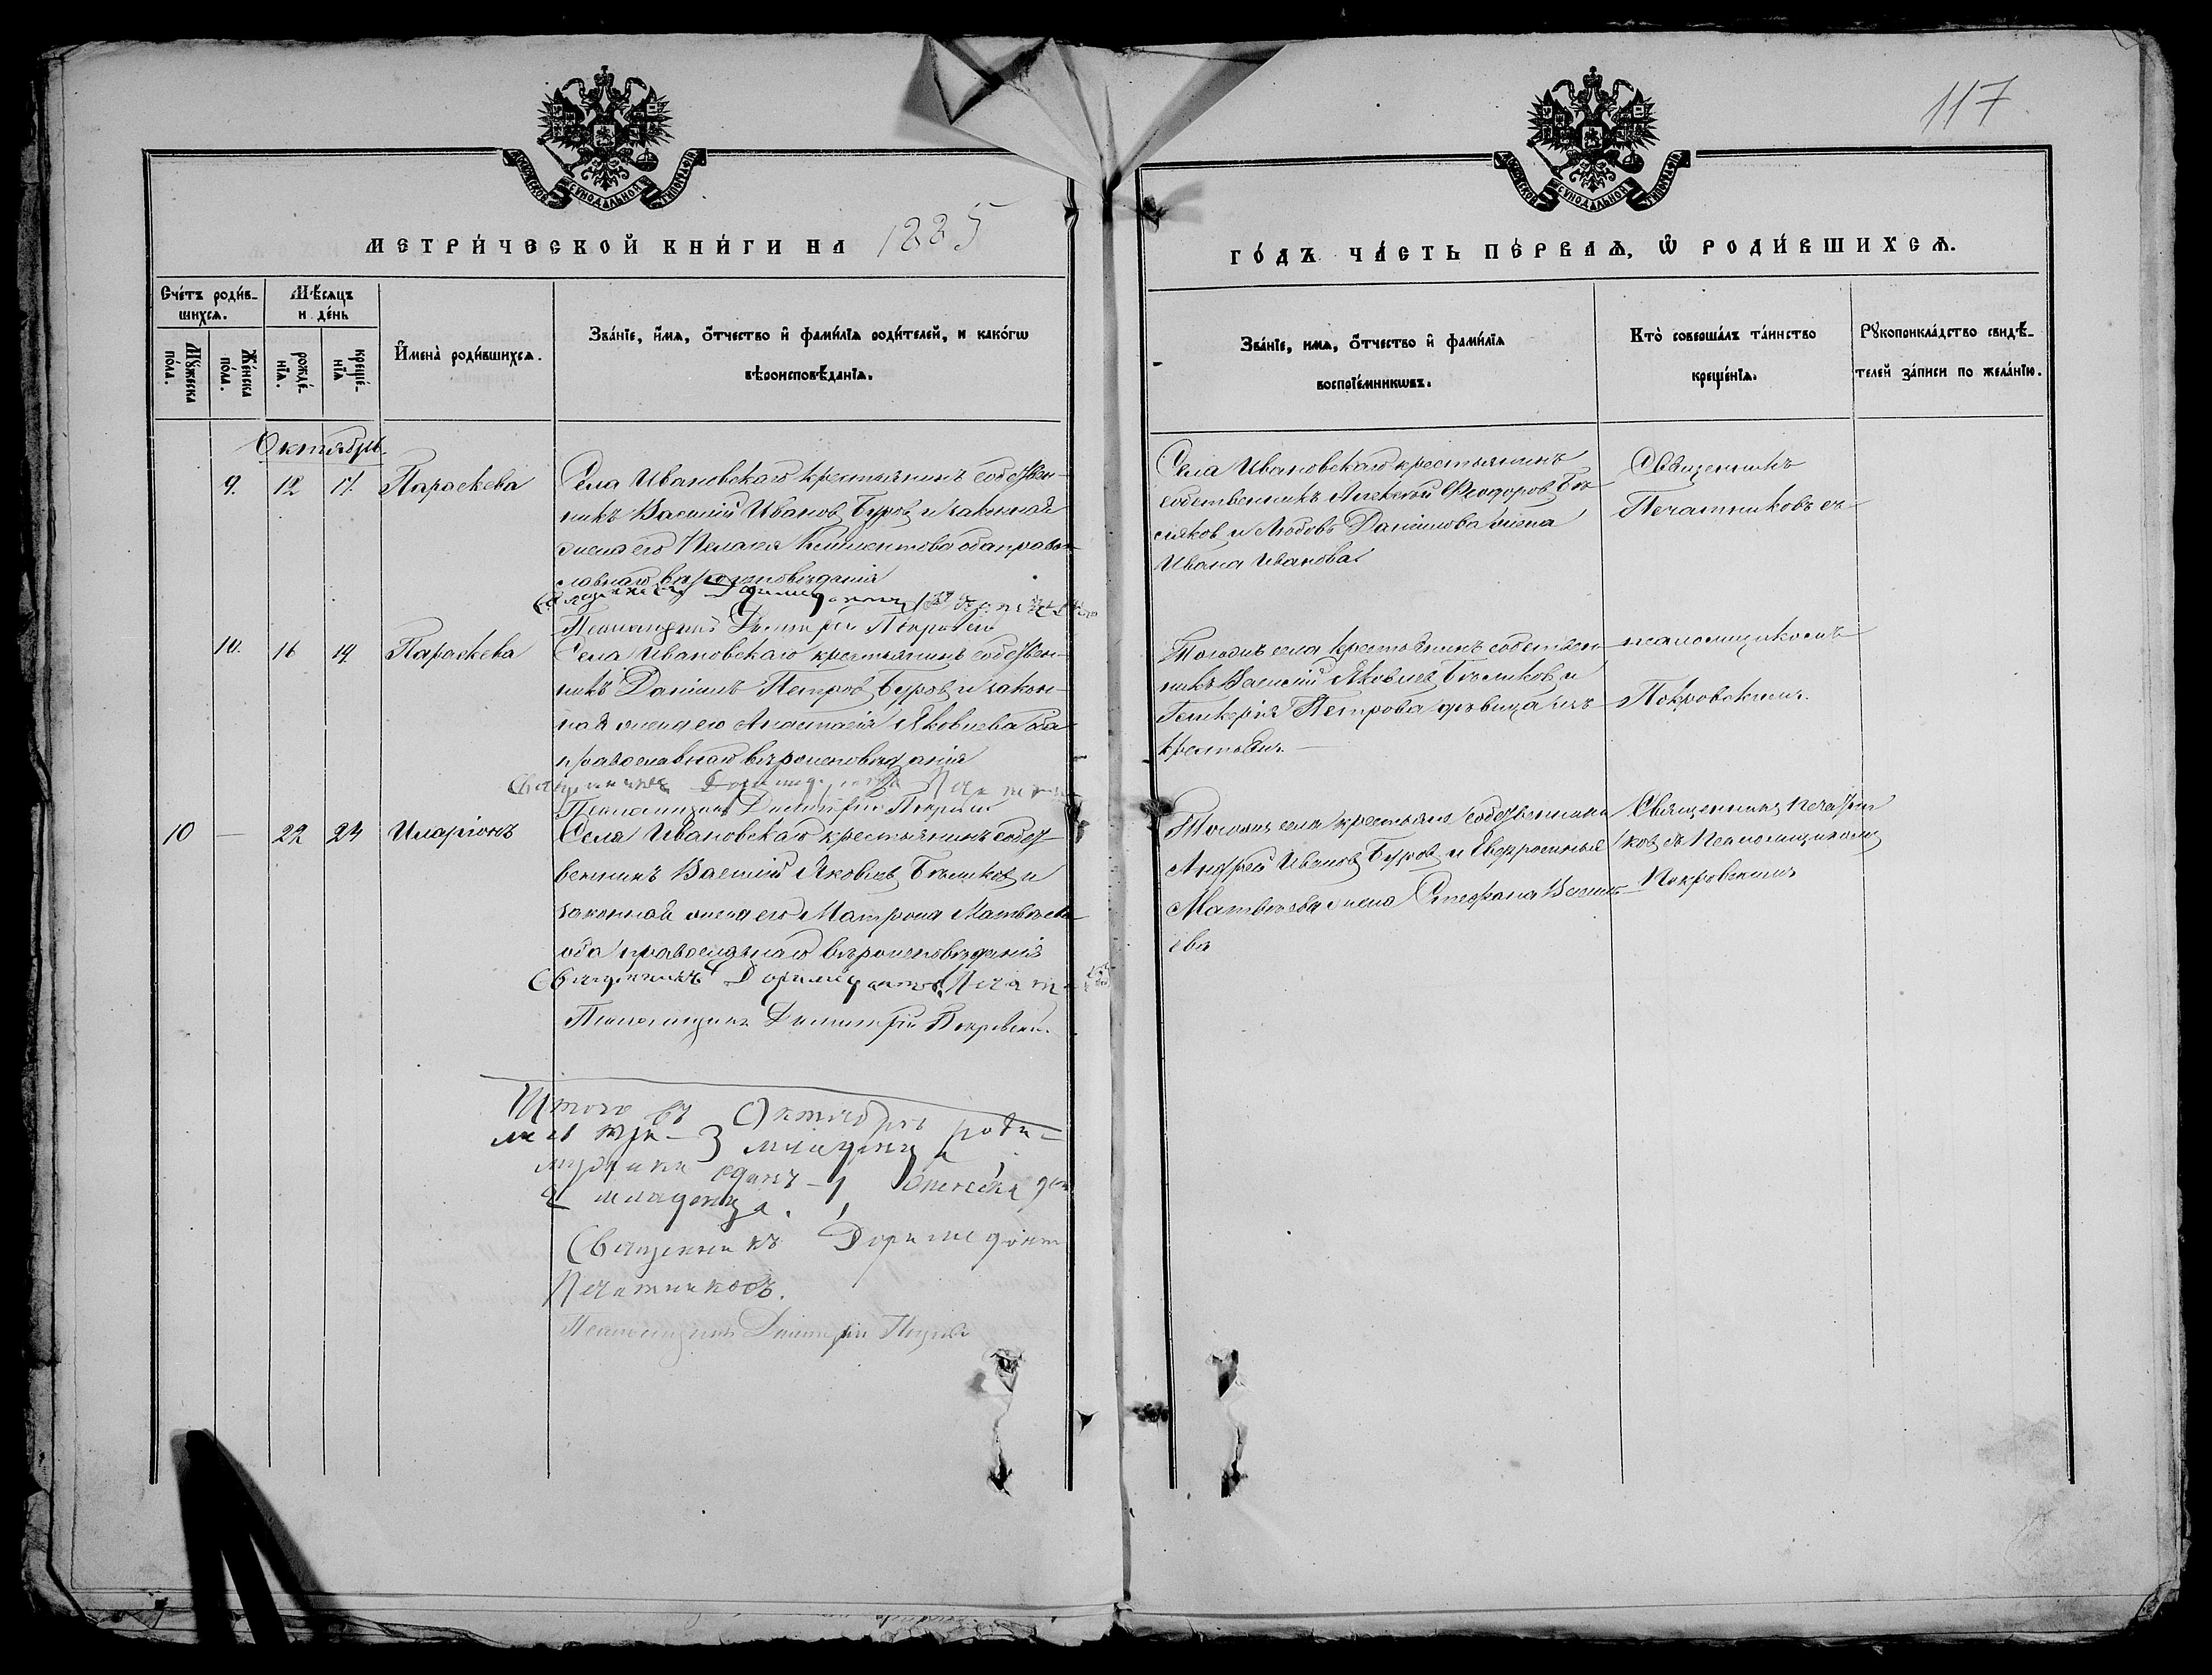 117
МОСКОВСКОЙ СѴНОДАЛЬНОЙ ТИПОГРАФІИ
МОСКОВСКОЙ СѴНОДАЛЬНОЙ ТИПОГРАФІИ
МЕТРИ́ЧЕСКОЙ КНИ́ГИ НА 1885
ГО́ДЪ ЧА́СТЬ ПЕ́РВАѦ, Ѡ҆ РОДИ́ВШИХСѦ.
Сче́тъ роди́в-
шихсѧ.
Мꙋ́жеска по́ла.
Же́нска по́ла.
Мѣ́сѧцъ
и де́нь
рожде́-
нїѧ.
креще́-
нїѧ
И҆мена̀ роди́вшихсѧ.
Зва́нїе, и҆́мѧ, ѻ҆́тчество и҆ фами́лїѧ роди́телей, и како́гѡ
вѣроисповѣ́данїѧ.
Зва́нїе, имѧ, ѻ҆́тчество и҆ фами́лїѧ
воспрїе́мникѡвъ.
Кто̀ соверша́лъ та́инство
креще́нїѧ.
Рꙋкоприкла́дство свидѣ́-
телей за́писи по жела́нїю.
Октябрь.
9. 12 14. Параскева
Села Ивановскаго крестьянинъ собствен-
никъ Василій Иванов Буров и законная
жена его Пелагея Климентова оба право-
славнаго вѣроисповѣданія
Священникъ Доримедонтъ
Псаломщикъ Димитрій Покровскій
Села Ивановскаго крестьянинъ
собственникъ Алексѣй Феодоров
и Любовь Даніилова жена
Ивана Иванова
Священникъ
Печатниковъ съ
10. 16 19. Параскева
Села Ивановскаго крестьянинъ собствен-
никъ Даніилъ Петров Буров и закон-
ная жена его Анастасія Яковлева оба
православнаго вѣроисповѣданія
Священникъ Доримедонтъ
Псаломщикъ Димитрій Покровскій
Тогожъ села крестьянинъ собствен-
никъ Василій Яковлев Бѣлików и
Гликерія Петрова дѣвица изъ
крестьян.
псаломщикомъ
Покровскимъ.
10 — 22 24 Иларіонъ
Села Ивановскаго крестьянинъ собст-
венникъ Василій Яковлев и
законная жена его Матрона Матвѣева
оба православнаго вѣроисповѣданія
Священникъ Доримедонтъ
Псаломщикъ Димитрій Покровскій.
Тогожъ села крестьяне собственники
Андрей Иванов Буров и
Матвѣева жена Стефана Василь-
ева
Священникъ Печатни-
ков съ Псаломщикомъ
Покровскимъ
Итого въ Октябрѣ роди-
три — 3 младенца
одинъ — 1
2 младенца.
Священникъ Доримедонт
Печатниковъ.
Псаломщикъ Димитрій